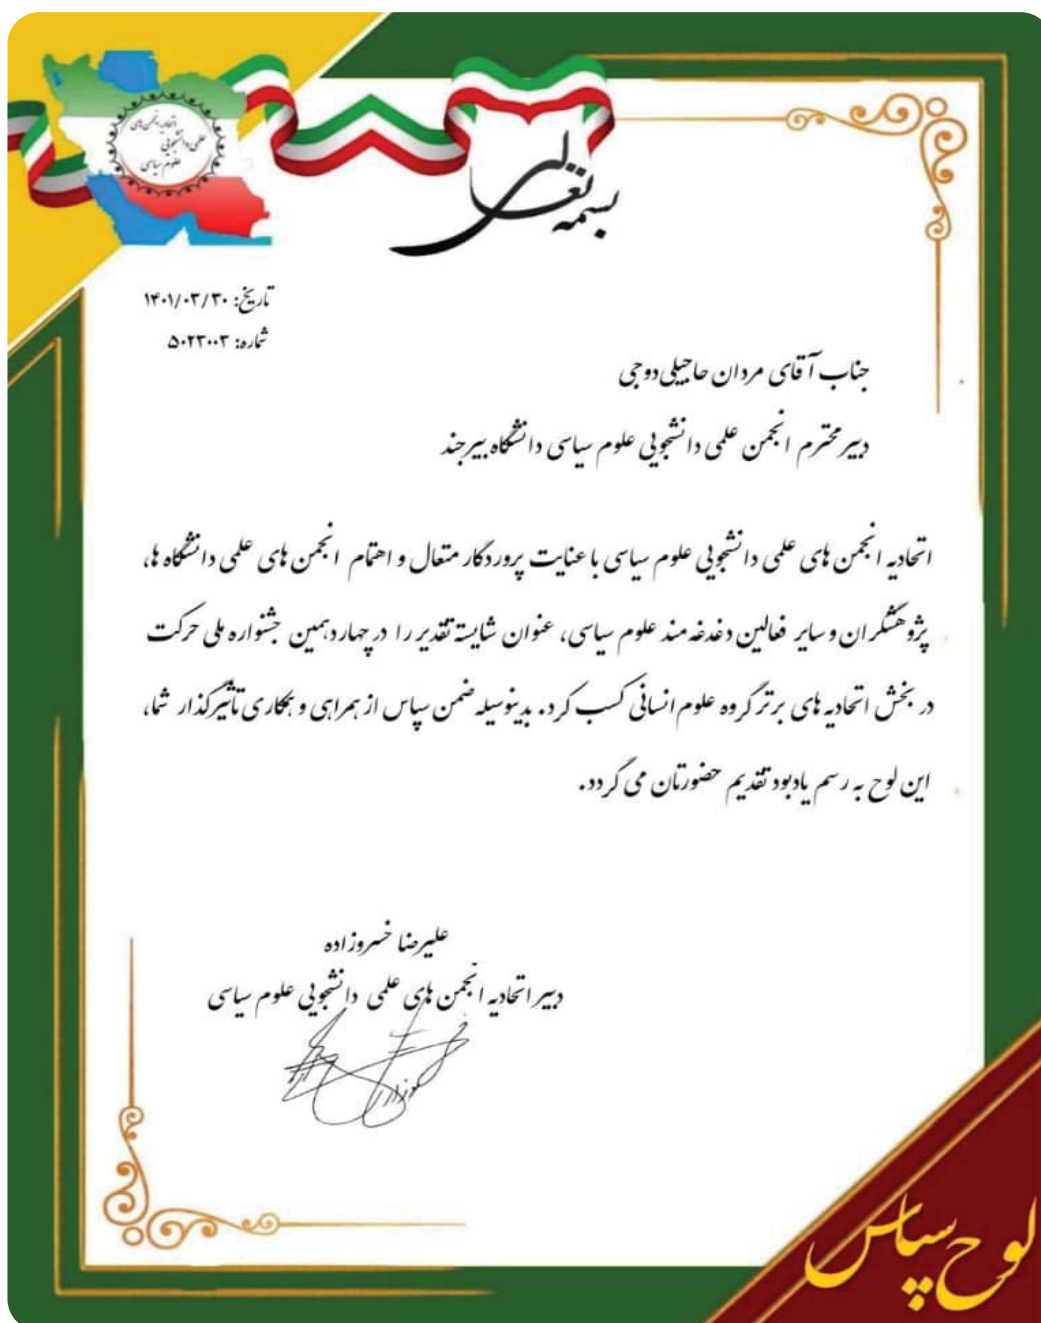 اتحادیه انجمن های
علمی دانشجویی
علوم سیاسی
بسمه تعالی
تاریخ: ۱۴۰۱/۰۳/۳۰
شماره: ۵۰۲۳۰۰۳
جناب آقای مردان حاجیلی دوجی
دبیر محترم انجمن علمی دانشجویی علوم سیاسی دانشگاه بیرجند
اتحادیه انجمن های علمی دانشجویی علوم سیاسی با عنایت پروردگار متعال و اهتمام انجمن های علمی دانشگاه ها،
پژوهشگران و سایر فعالین دغدغه مند علوم سیاسی، عنوان شایسته تقدیر را در چهاردهمین جشنواره ملی حرکت
در بخش اتحادیه های برتر گروه علوم انسانی کسب کرد. بدینوسیله ضمن سپاس از همراهی و همکاری تأثیرگذار شما،
این لوح به رسم یادبود تقدیم حضورتان می گردد.
علیرضا خسروزاده
دبیر اتحادیه انجمن های علمی دانشجویی علوم سیاسی
لوح سپاس